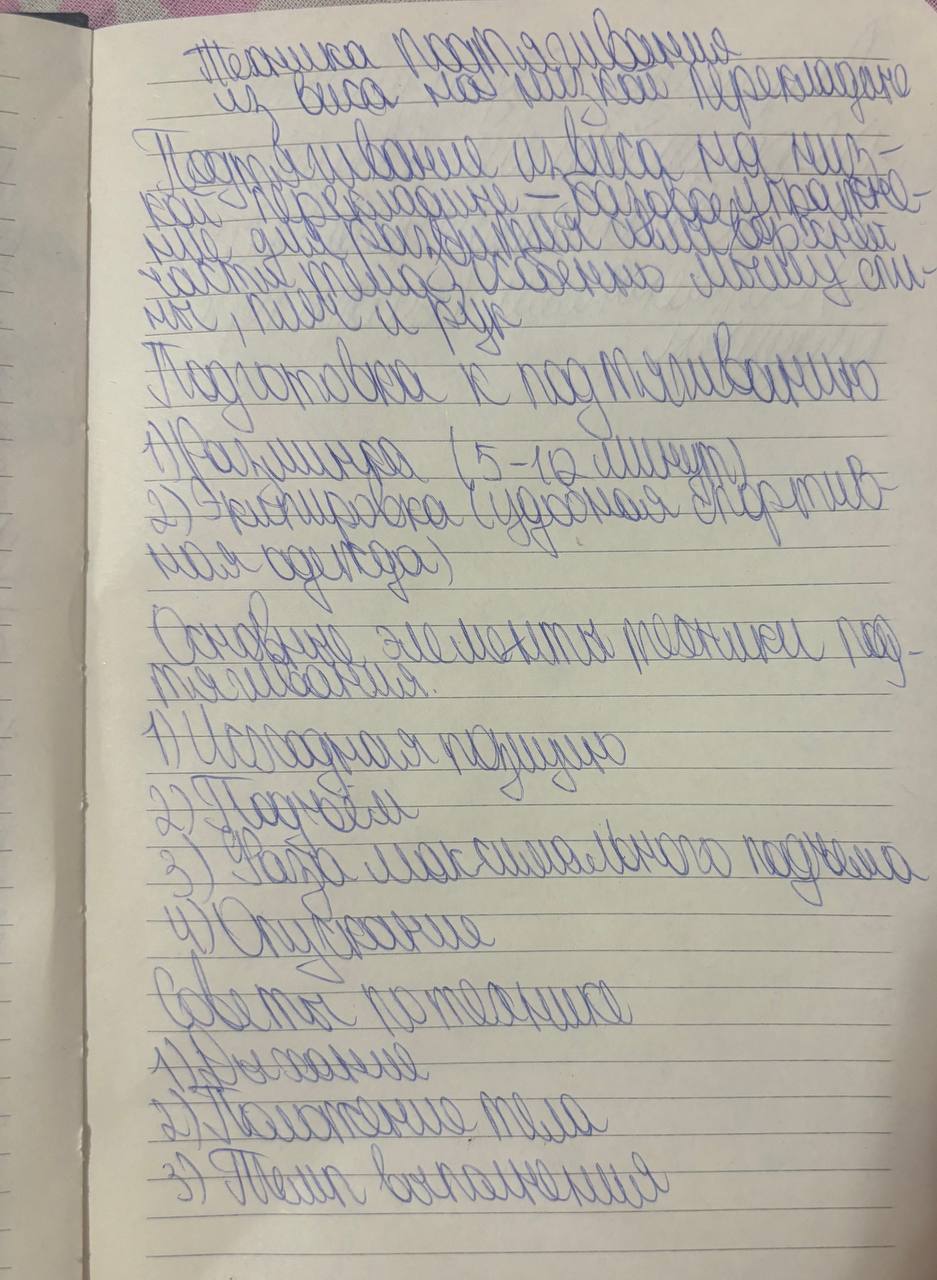 Техника подтягивания
из виса на низкой перекладине
Подтягивание из виса на низ-
кой перекладине – базовое упражне-
ние для развития силы верхней
части тела, особенно мышц спи-
ны, плеч и рук
Подготовка к подтягиванию
1) Разминка (5-10 минут)
2) Экипировка (удобная спортив-
ная одежда)
Основные элементы техники под-
тягивания.
1) Исходная позиция
2) Подъём
3) Фаза максимального подъема
4) Опускание
Советы по технике
1) Дыхание
2) Положение тела
3) Темп выполнения